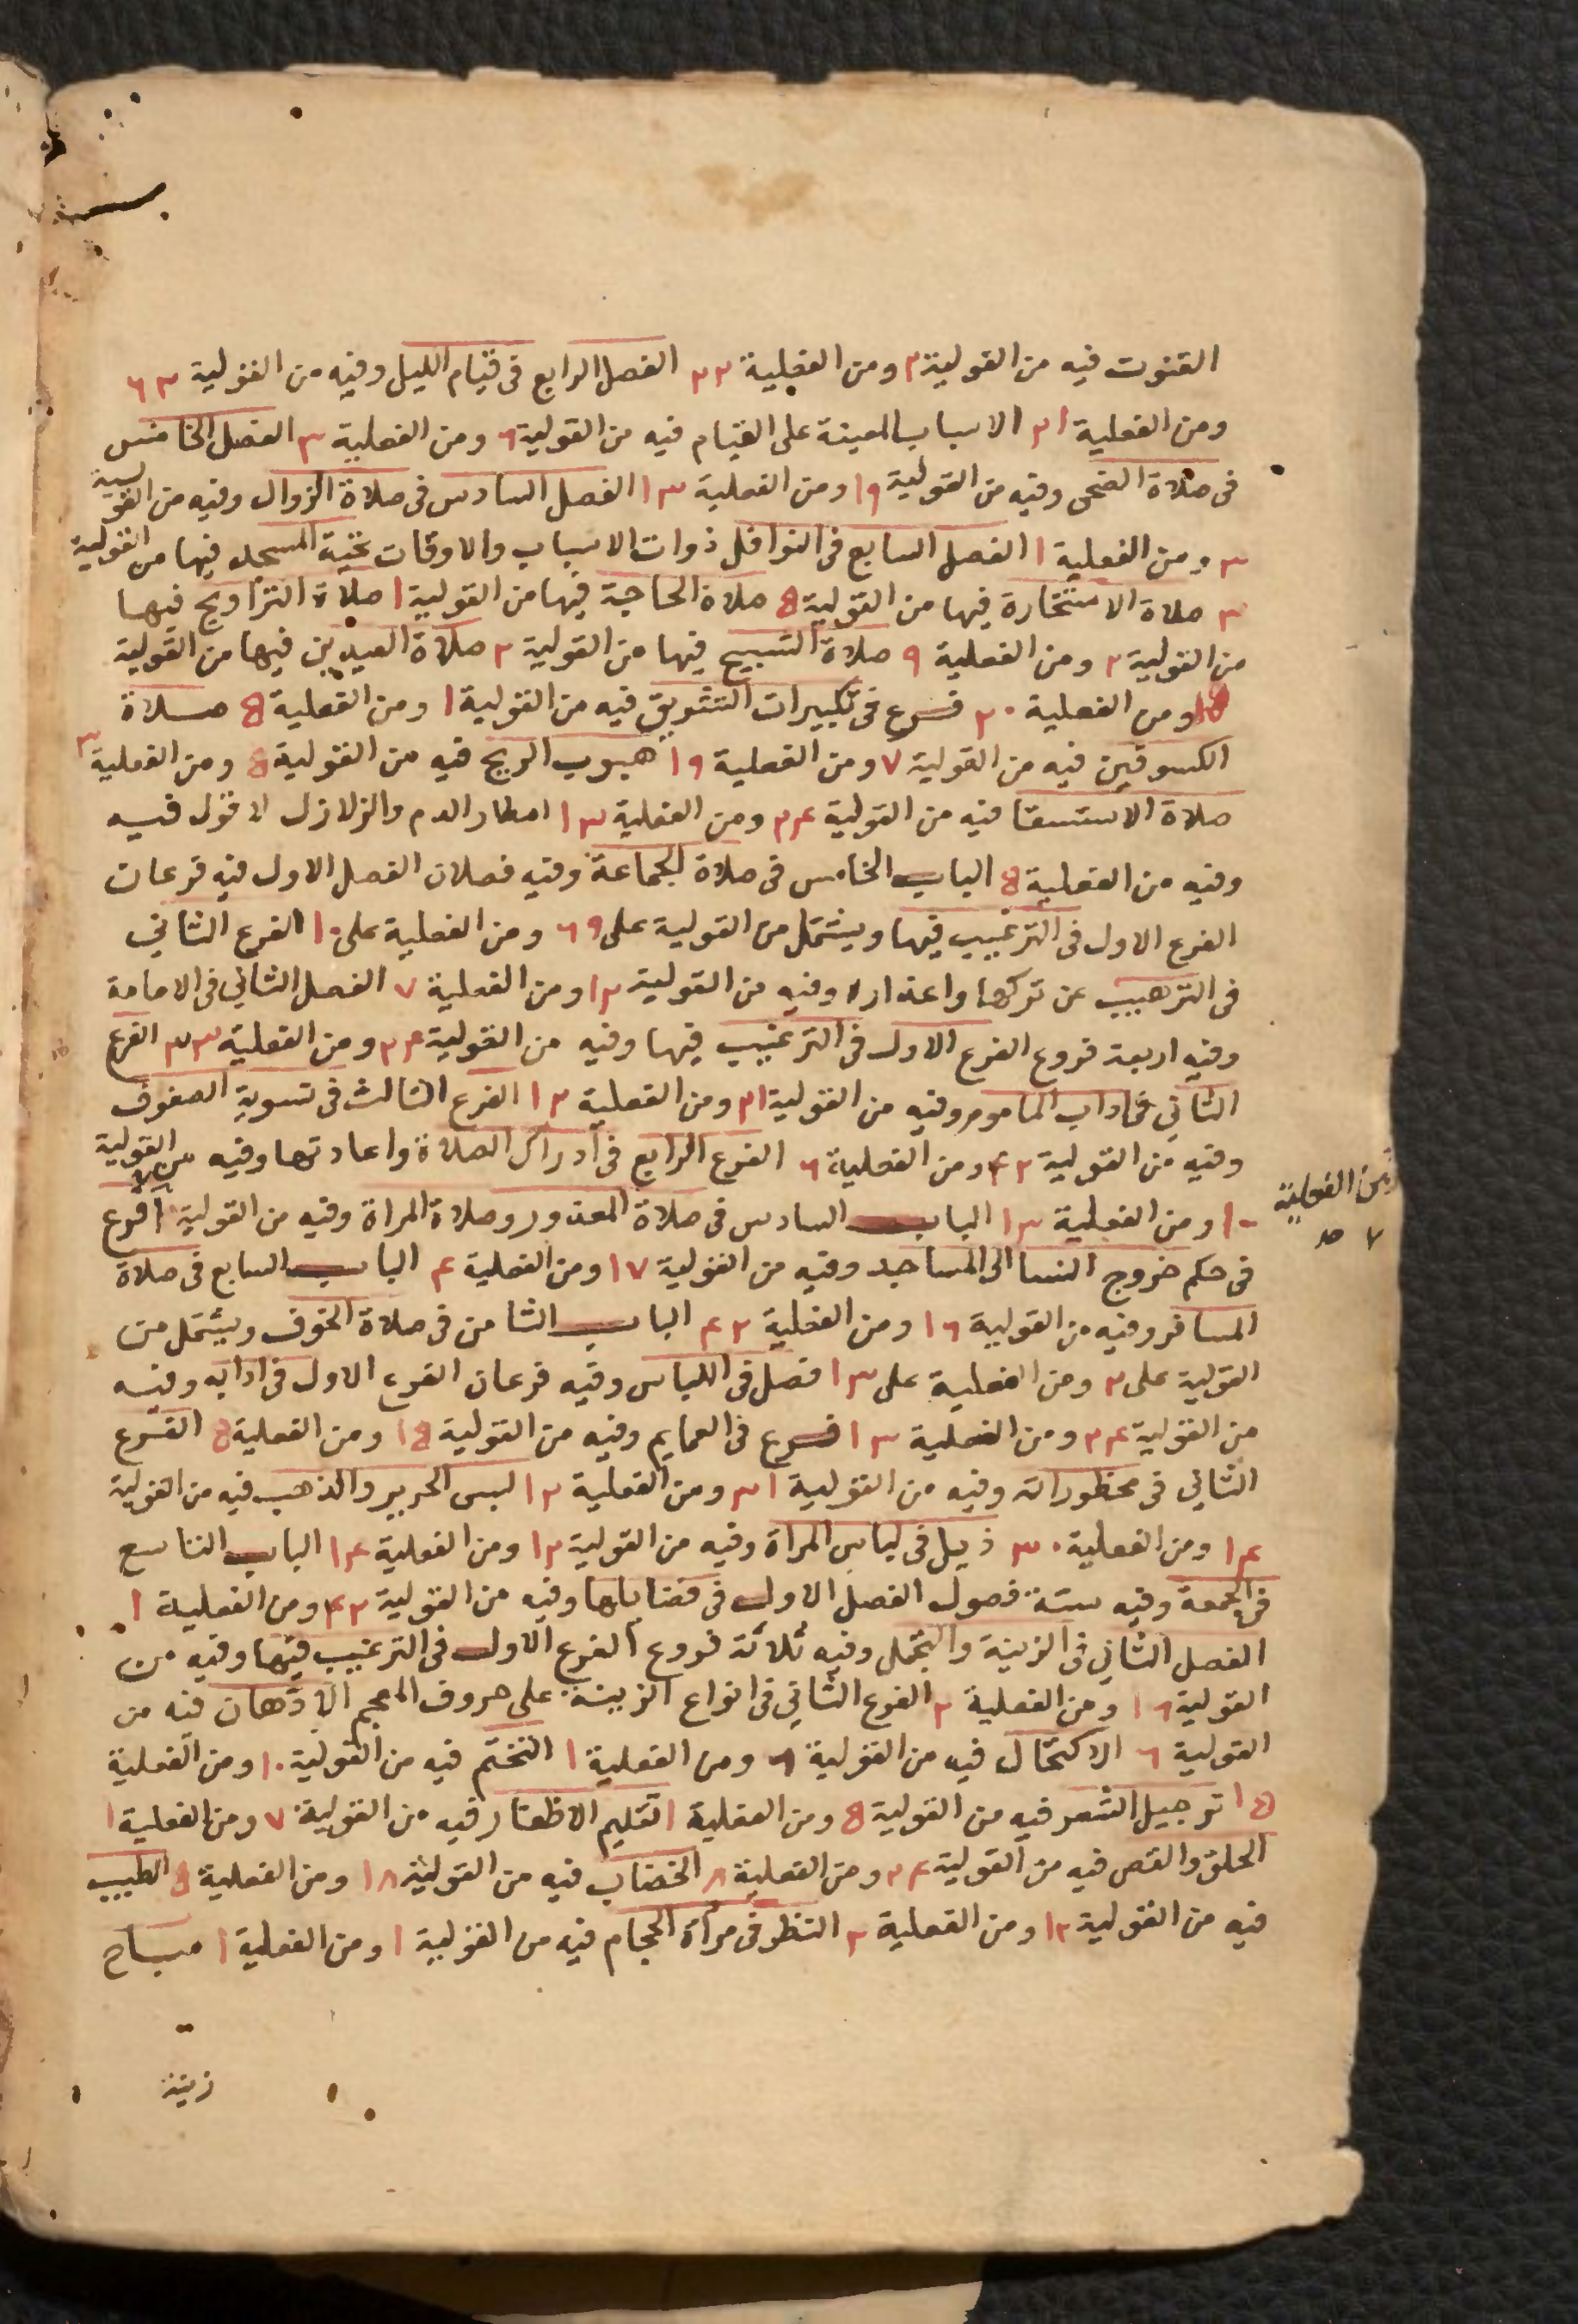 القنوت فيه من القولية ٢ ومن الفعلية ٢٢ الفصل الرابع فى قيام الليل وفيه من القولية ٦٣
ومن الفعلية ٢١ الاسباب المعينة على القيام فيه من القولية ٦ ومن الفعلية ٣ الفصل الخامس
فى صلاة الضحى وفيه من القولية ١٩ ومن الفعلية ١٣ الفصل السادس فى صلاة الزوال وفيه من القولية
٣ ومن الفعلية ١ الفصل السابع فى النوافل ذوات الاسباب والاوقات تحية المسجد فيها من القولية
٣ صلاة الاستخارة فيها من القولية ٥ صلاة الحاجة فيها من القولية ١ صلاة التراويح فيها
من القولية ٢ ومن الفعلية ٩ صلاة التسبيح فيها من القولية ٢ صلاة العيدين فيها من القولية
ومن الفعلية ٢٠ فرع فى تكبيرات التشريق فيه من القولية ١ ومن الفعلية ٥ صلاة
الكسوفين فيه من القولية ٧ ومن الفعلية ١٩ هبوب الريح فيه من القولية ٥ ومن الفعلية ٣
صلاة الاستسقا فيه من القولية ٢٤ ومن الفعلية ١٣ امطار الدم والزلازل لا قول فيه
وفيه من الفعلية ٥ الباب الخامس فى صلاة الجماعة وفيه فصلان الفصل الاول فيه فرعان
الفرع الاول فى الترغيب فيها ويشتمل من القولية على ٦٩ ومن الفعلية على ١٠ الفرع الثاني
فى الترهيب عن تركها واعذاره وفيه من القولية ١٢ ومن الفعلية ٧ الفصل الثاني فى الامامة
وفيه اربعة فروع الفرع الاول فى الترغيب فيها وفيه من القولية ٢٤ ومن الفعلية ٣٣ الفرع
الثاني فى اداب الماموم وفيه من القولية ٢١ ومن الفعلية ١٢ الفرع الثالث فى تسوية الصفوف
وفيه من القولية ٤٢ ومن الفعلية ٦ الفرع الرابع فى ادراك الصلاة واعادتها وفيه من القولية
١٠ ومن الفعلية ١٣ الباب السادس فى صلاة المعذور وصلاة المراة وفيه من القولية فرع
ومن الفعلية
٧
فى حكم خروج النسا الى المساجد وفيه من القولية ١٧ ومن الفعلية ٤ الباب السابع فى صلاة
المسافر وفيه من القولية ١٦ ومن الفعلية ٤٢ الباب الثامن فى صلاة الخوف ويشتمل من
القولية على ٢ ومن الفعلية على ١٣ فصل فى اللباس وفيه فرعان الفرع الاول فى ادابه وفيه
من القولية ٢٤ ومن الفعلية ١٣ فرع فى العمايم وفيه من القولية ١٥ ومن الفعلية ٥ الفرع
الثاني فى محظوراته وفيه من القولية ٣١ ومن الفعلية ١٢ لبس الحرير والذهب فيه من القولية
١٤ ومن الفعلية ٣٠ ذيل فى لباس المراة وفيه من القولية ١٢ ومن الفعلية ١٤ الباب التاسع
فى الجمعة وفيه ستة فصول الفصل الاول فى فضايلها وفيه من القولية ٤٢ ومن الفعلية ١
الفصل الثاني فى الزينة والتجمل وفيه ثلاثة فروع الفرع الاول فى الترغيب فيها وفيه من
القولية ١٦ ومن الفعلية ٢ الفرع الثاني فى انواع الزينة على حروف المعجم الادهان فيه من
القولية ٦ الاكتحال فيه من القولية ٦ ومن الفعلية ١ التختم فيه من القولية ١٠ ومن الفعلية
١٥ ترجيل الشعر فيه من القولية ٥ ومن الفعلية ١ تقليم الاظفار فيه من القولية ٧ ومن الفعلية ١
الحلق والقص فيه من القولية ٢٤ ومن الفعلية ٨ الخضاب فيه من القولية ١٨ ومن الفعلية ٥ الطيب
فيه من القولية ١٢ ومن الفعلية ٢ النظر فى مراة الحجام فيه من القولية ١ ومن الفعلية ١ مباح
زينة